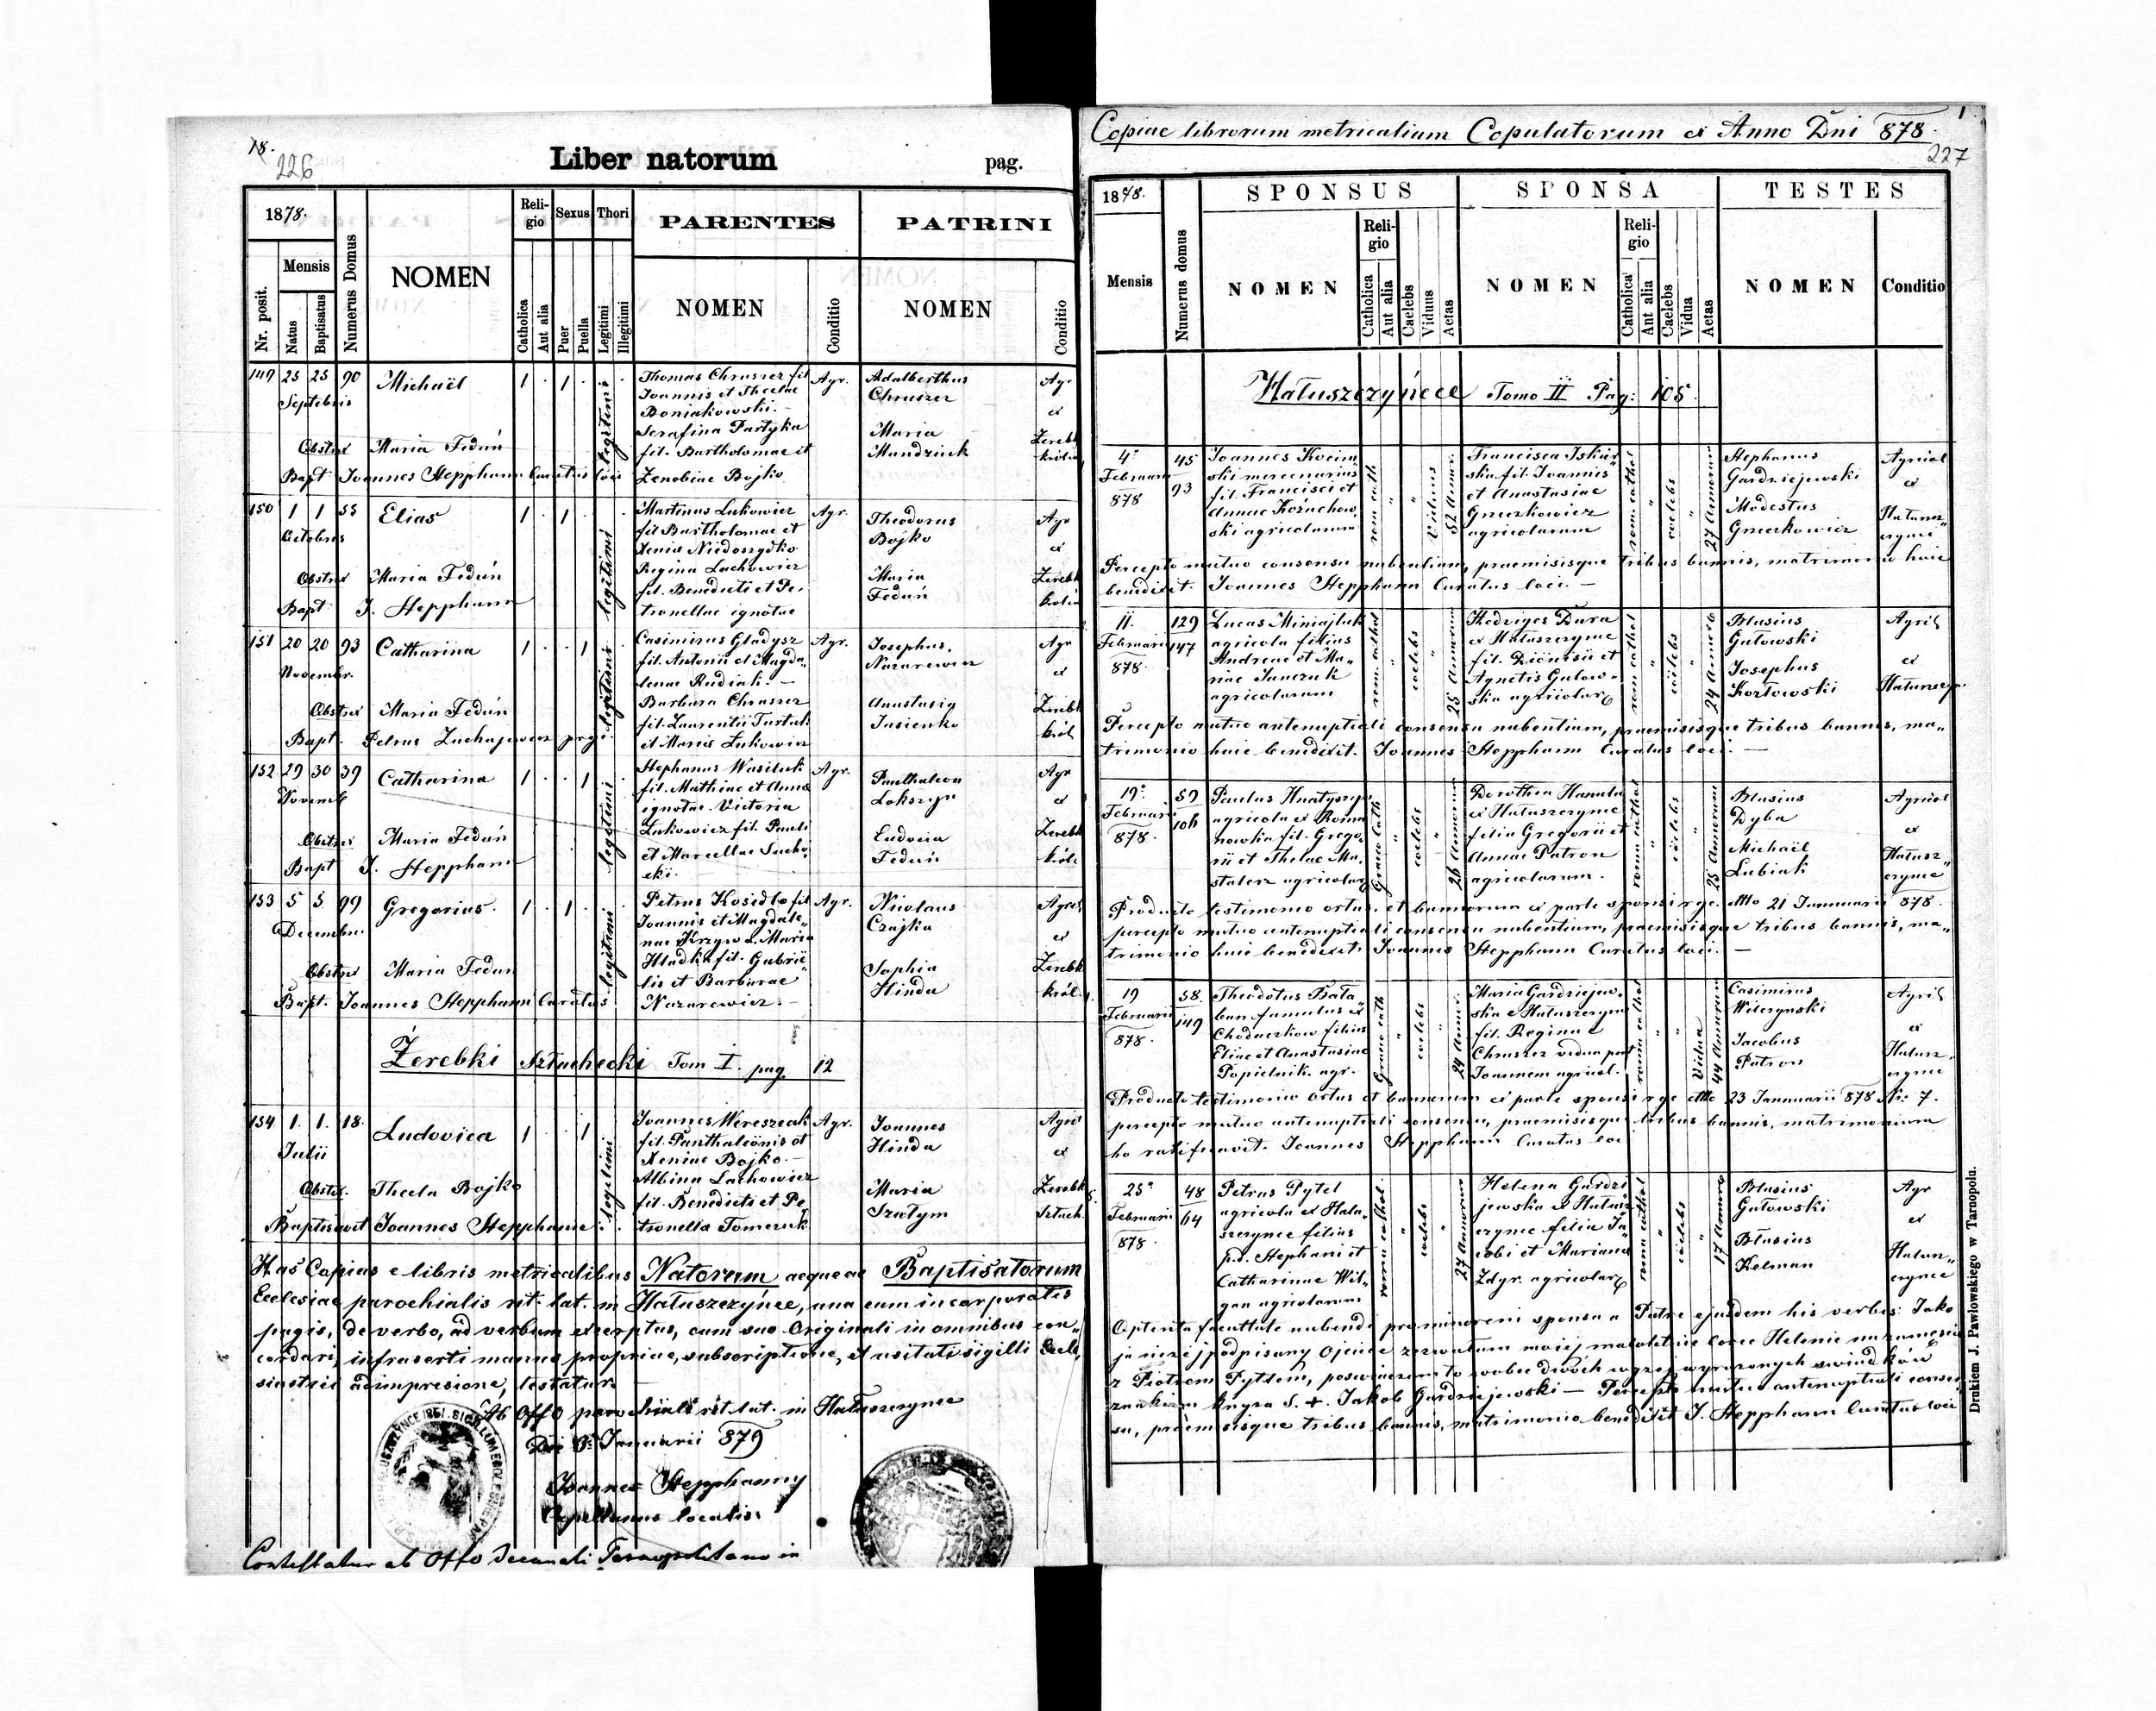 18.
226
Liber natorum pag.
1878.
Nr. posit.
Mensis
Natus
Baptisatus
Numerus Domus
NOMEN
Religio
Catholica
Aut alia
Sexus
Puer
Puella
Thori
Legitimi
Illegitimi
PARENTES
NOMEN
Conditio
PATRINI
NOMEN
Conditio
149 25 25 90 Michaël 1 . 1 .
Septebris
legitimi
Obstex Maria Feduń
Bapt Joannes Hepphann Curatus loci
Thomas Chruszcz fil
Joannis et Theclae
Boniakowski. —
Serafina Partyka
fil. Bartholomaei et
Zenobiae Bojko
Agr.
Adalberthus
Chruszcz
Maria
Mundziuk
Agr
ex
Zerebk
królew
150 1 1 55 Elias 1 . 1 .
Octobris
legitimi
Obstex Maria Feduń
Bapt J. Hepphann
Martinus Łukowicz
fil Bartholomae et
Xenia Niedoszydko
Regina Lachowicz
fil. Benedicti et Pe,
tronellae ignotae
Agr.
Theodorus
Bojko
Maria
Feduń
Agr
ex
Zerebk
królew
151 20 20 93 Catharina 1 . . 1
Novembr.
legitimi
Obstex Maria Feduń
Bapt. Petrus Zuchajewicz
Casimirus Gladysz
fil. Antonii et Magda„
lenae Rudiak. —
Barbara Chruszcz
fil. Laurentii Turtuk
et Maria Łukowicz
Agr.
Josephus,
Nazarewicz
Anastasia
Jasienko
Agr
ex
Zerebk
król
152 29 30 39 Catharina 1 . . 1
Novemb
legitimi
Obstex Maria Feduń
Bapt J. Hepphann
Stephanus Wasiluk
fil. Mathiae et Anna
ignotae. Victoria
Łukowicz fil. Pauli
et Marcellae Sucho,
cki.
Agr.
Panthaleon
Lokszyn
Ludovica
Feduń
Agr
ex
Zerebk
król.
153 5 5 99 Gregorius. 1 . 1 .
Decembr.
legitimi
Obstex Maria Fedun
Bapt. Joannes Hepphann Curatus
Petrus Kosidlo fil
Joannis et Magdale„
nae Krzyw . Maria
Hladka fil. Gabrië„
lis et Barbarae
Nazarewicz. —
Agr.
Nicolaus
Czajka
Sophia
Hinda
Agric
ex
Zerebk
król.
Żerebki Szlachecki Tom I. pag. 12
154 1. 1. 18. Ludovica 1 . . 1
Julii
legitimi
Obstex. Thecla Bojko
Baptisavit Joannes Hepphann
Joannes Wereszcak
fil. Panthaleonis et
Xeniae Bojko. —
Albina Lachowicz
fil. Benedicti et Pe
tronella Tomczuk
Agr.
Joannes
Hinda
Maria
Szatym
Agric
ex
Zerebk
Szlach.
Has Copias e libris metricalibus Natorum aeque ac Baptisatorum
Ecclesiae parochialis rit. lat. in Hałuszczyńce, una cum incorporatis
pagis, de verbo, ad verbum excerptas, cum suo Originali in omnibus con„
cordari, infraserti manus propriae, subscriptione, et usitati sigilli Eccle,
siastici adimpresione, testatur. —
Ab Offo parochiali rit. lat. in Hałuszczynce
Die Januarii 879
Joannes Hepphann
Capellanus localis
Contestatur ab Offo Decanali Tarnopolitano in
Copiae librorum metricalium Copulatorum ex Anno Dni 878.
1
227
1878.
Mensis
Numerus domus
SPONSUS
NOMEN
Religio
Catholica
Aut alia
Caelebs
Viduus
Aetas
SPONSA
NOMEN
Religio
Catholica
Aut alia
Caelebs
Vidua
Aetas
TESTES
NOMEN
Conditio
Hałuszczyńce Tomo II Pag: 105.
4a
Februarii
878
45
93
Joannes Kocim„
ski mercenarius
fil. Francisci et
Annae Kożuchow,
ski agricolarum
rom cath
Viduus
52 annor.
Francisca Iskur„
ska fil. Joannis
et Anastasiae
Gneczkowicz
agricolarum
rom. cathol
caelebs
27 Annorum
Stephanus
Gardziejewski
Modestus
Gneczkowicz
Agricol
ex
Hałuszcz„
czynce
Percepto mutuo consensu nubentium, praemisisque tribus bannis, matrimonio huic
benedixit. Joannes Hepphann Curatus loci. —
11.
Februarii
878.
129
147
Lucas Miniajluk
agricola filius
Andreae et Ma„
riae Janczuk
agricolarum
rom. cathol
caelebs
25 Annorum
Hedviges Dura
ex Hałuszczynce
fil. Dionisii et
Agnetis Gutow„
ska agricolar
rom cathol
caelebs
24 Annor
Blasius
Gutowski
Josephus
Kozłowski
Agric
ex
Hałuszczyn.
Percepto mutuo antenuptiali consensu nubentium, praemisisque tribus bannis, ma„
trimonio huic benedixit. Joannes Hepphann Curatus loci. —
19a
Februarii
878.
59
106
Paulus Hnatyszyn
agricola ex Roma
nowka fil. Grego„
rii et Theclae Ma„
stalerz agricolar
Graeco Cath
caelebs
26 Annorum
Dorothea Hanula
ex Hałuszczynce
filia Gregorii et
Annae Patron
agricolarum.
roma cathol
caelebs
25 Annorum
Blasius
Dyba
Michaël
Lubiak
Agricol
ex
Hałusz„
czynce
Producto testimonio ortus, et bannorum ex parte sponsi rgc. ddto 21 Januarii 878.
percepto mutuo antenuptiali consensu nubentium, praemisisque tribus bannis, ma„
trimonio huic benedixit. Joannes Hepphann Curatus loci. —
19
Februarii
878.
58.
149
Theodotus Bała„
ban famulus ex
Chodaczkow filius
Eliae et Anastasiae
Popielnik. agr.
Graeco cath
caelebs
24 Annor.
Maria Gardziejew„
ska e Hałuszczynce
fil. Reginae
Chruszcz vidua post
Joannem agricol.
roma cathol
Vidua
44 Annorum
Casimirus
Wilczynski
Jacobus
Patron
Agric
ex
Hałusz„
czynce
Producto testimonio ortus et bannorum ex parte sponsi rgc ddto 23 Januarii 878 Nr. 7.
percepto mutuo antenuptiali consensu, praemisisque tribus bannis, matrimonium
hoc ratificavit. Joannes Hepphann Curatus loci
25a
Februarii
878.
48
64
Petrus Pytel
agricola ex Hału„
szczynce filius
p.d. Stephani et
Catharinae Wil„
gan agricolarum
roma cathol.
caelebs
27 Annorum
Helena Gardzi
jewska ex Hałusz
czynce filia Ja„
cobi et Mariana
Zdyr. agricolar
roma cathol
caelebs
17 Annor
Blasius
Gutowski
Blasius
Kelman
Agr
ex
Hałusz„
czynce
Optenta facultate nubendi pro minoreni sponsa a Patre ejusdem his verbis: Jako
ja niżej podpisany Ojciec zezwalam mojej małoletnie corce Helenie na zamescie
z Piotrem Pytlem, poswiaczam to wobec dwóch wyzej wyrazonych swiadków
znakiem krzyza S. + Jakob Gardziejewski — Percepto mutuo antenuptiali consen
su, praemisisque tribus bannis, matrimonio benedixit J. Hepphann Curatus loci
Drukiem J. Pawlowskiego w Tarnopolu.